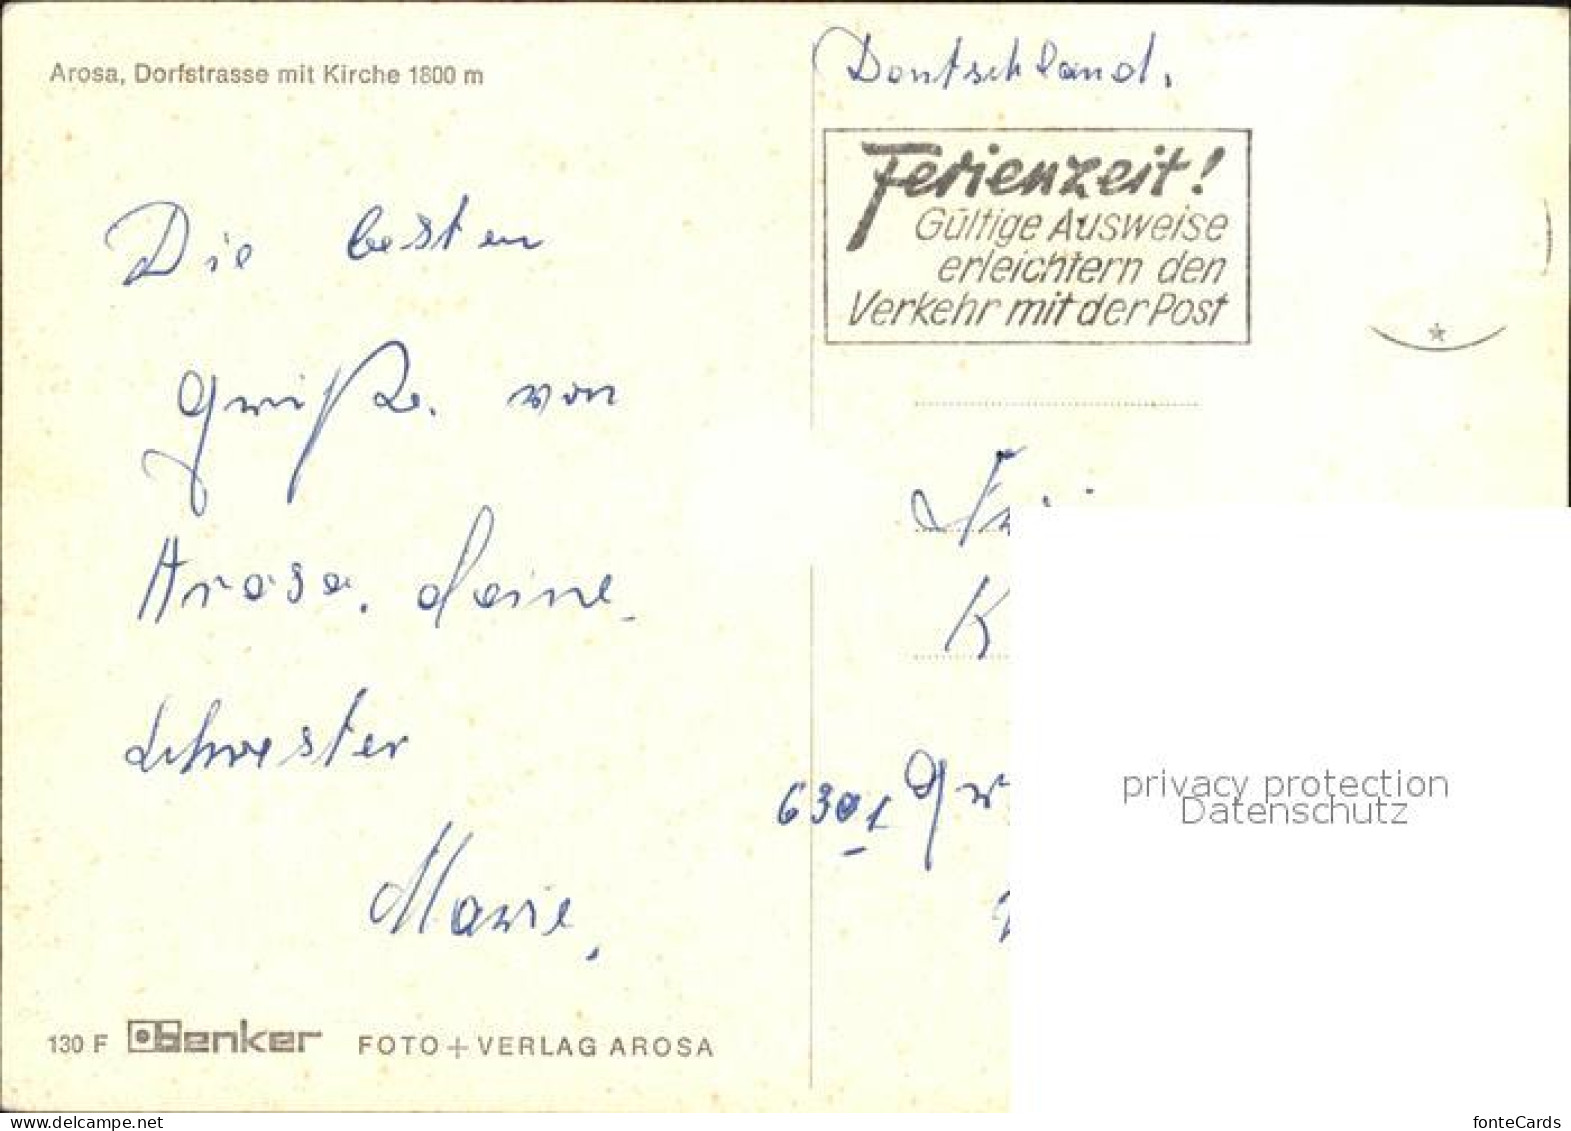 Arosa, Dorfstrasse mit Kirche 1800 m
Die besten
Grüße von
Arosa. deine
Schwester
Marie.
130 F Denker FOTO + VERLAG AROSA
Deutschland.
Ferienzeit!
Gültige Ausweise
erleichtern den
Verkehr mit der Post
K
6301
privacy protection
Datenschutz
www.delcampe.net
fonteCards